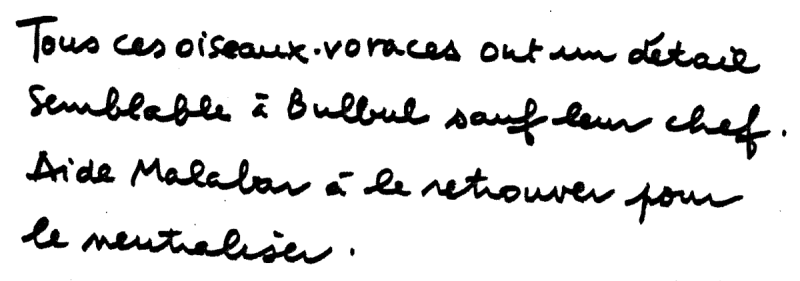 Tous ces oiseaux.voraces ont un détail
semblable à Bulbul sauf leur chef.
Aide Malabar à le retrouver pour
le neutraliser.